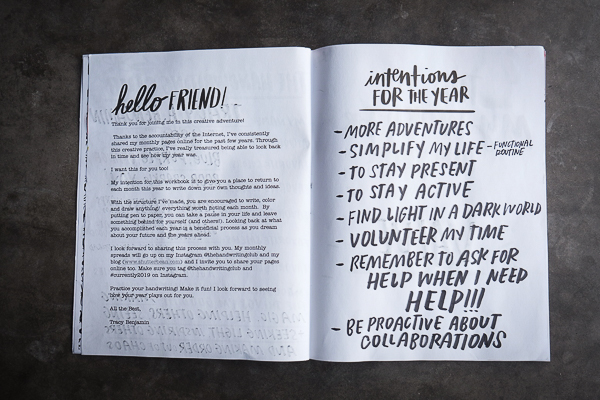 hello FRIEND!
Thank you for joining me in this creative adventure!
Thanks to the accountability of the Internet, I've consistently
shared my monthly pages online for the past few years. Through
this creative practice, I've really treasured being able to look back
in time and see how my year was.
I want this for you too!
My intention for this workbook is to give you a place to return to
each month this year to write down your own thoughts and ideas.
With the structure I've made, you are encouraged to write, color
and draw anything/ everything worth noting each month. By
putting pen to paper, you can take a pause in your life and leave
something behind for yourself (and others!). Looking back at what
you accomplished each year is a beneficial process as you dream
about your future and the years ahead.
I look forward to sharing this process with you. My monthly
spreads will go up on my Instagram @thehandwritingclub and my
blog (www.shutterbean.com) and I invite you to share your pages
online too. Make sure you tag @thehandwritingclub and
#currently2019 on Instagram.
Practice your handwriting! Make it fun! I look forward to seeing
how your year plays out for you.
All the Best,
Tracy Benjamin
intentions
FOR THE YEAR
- MORE ADVENTURES
- SIMPLIFY MY LIFE - FUNCTIONAL
ROUTINE
- TO STAY PRESENT
- TO STAY ACTIVE
- FIND LIGHT IN A DARK WORLD
- VOLUNTEER MY TIME
- REMEMBER TO ASK FOR
HELP WHEN I NEED
HELP!!!
- BE PROACTIVE ABOUT
COLLABORATIONS